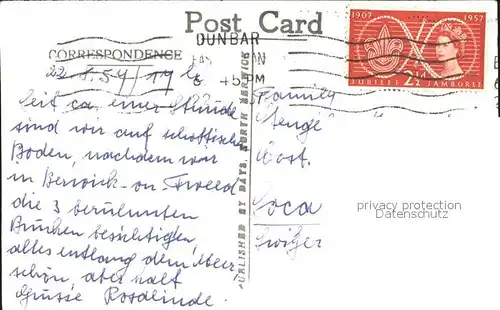 Post Card
DUNBAR
CORRESPONDENCE
1907 1957
JUBILEE 2½D JAMBOREE
+5 PM
Seit ca. einer Stunde
sind wir auf schottischem
Boden, nachdem wir
in Berwick-on-Tweed
die 3 berühmten
Brücken besichtigten,
alles entlang dem Meer,
schön, aber kalt
Grüsse Rosalinde.
PUBLISHED BY DAYS, NORTH BERWICK
Family
Post.
privacy protection
Datenschutz